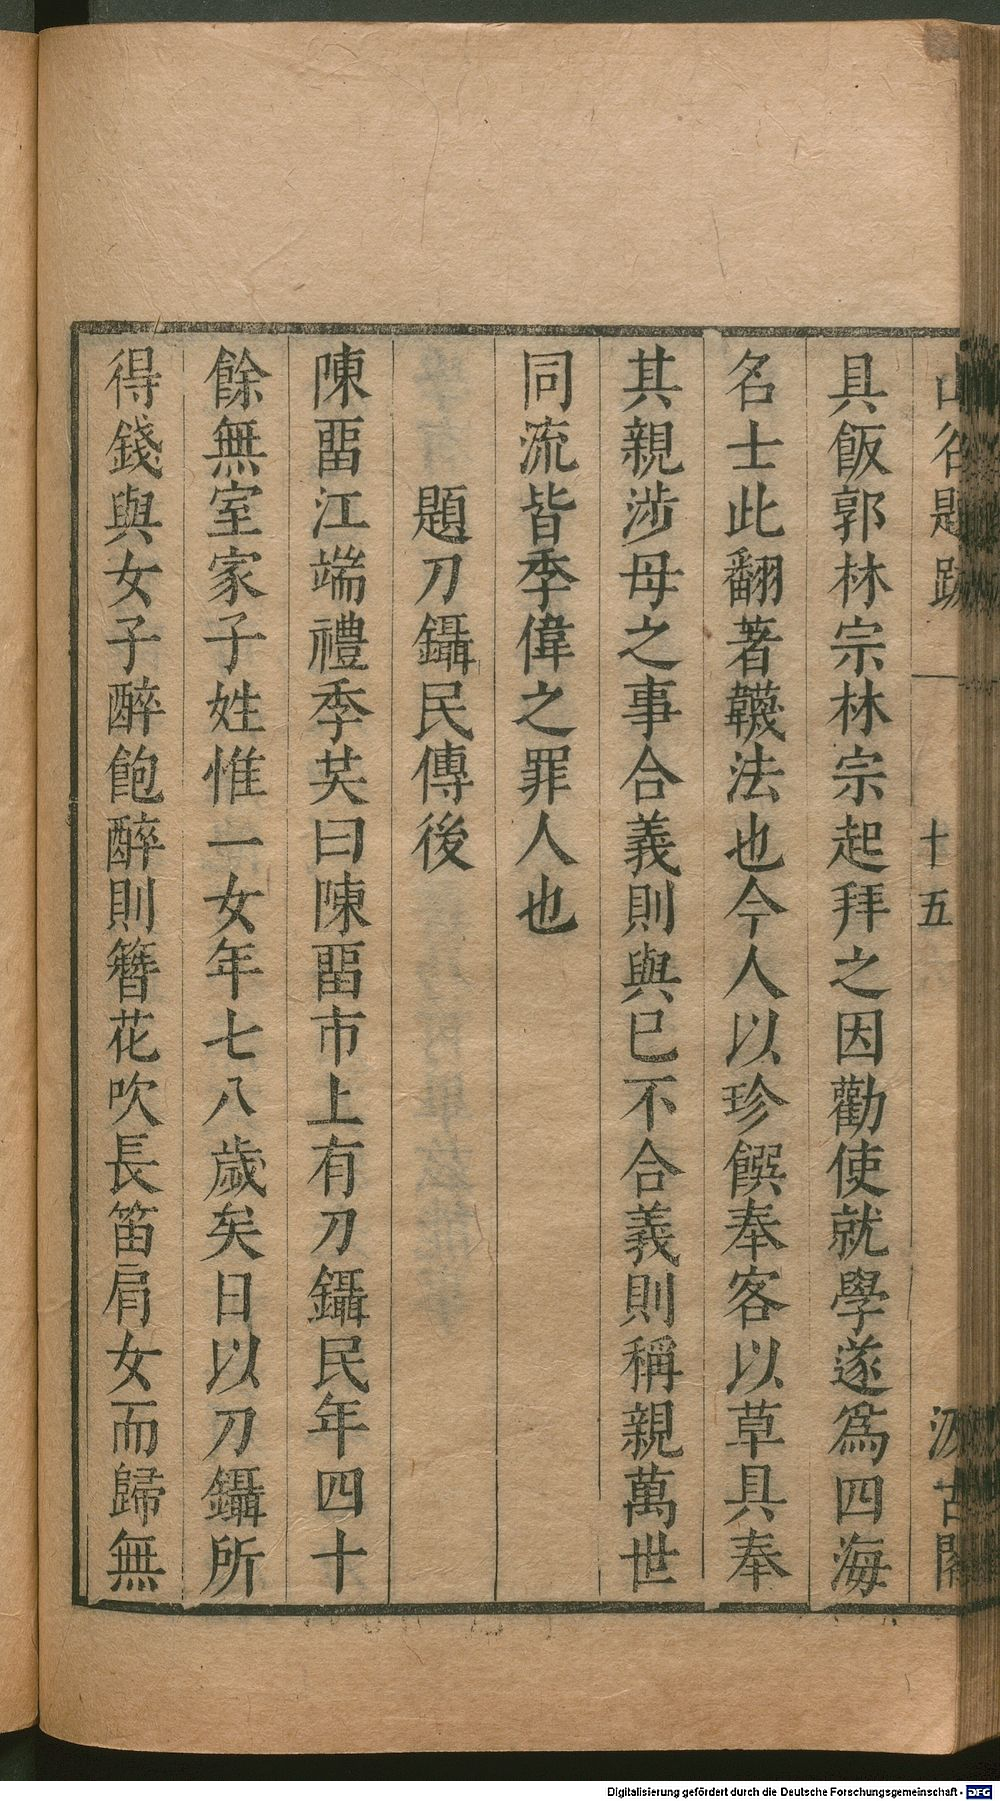 山谷題跋 十五 汲古閣
具飯郭林宗林宗起拜之因勸使就學遂爲四海
名士此翻著韈法也今人以珍饌奉客以草具奉
其親涉母之事合義則與已不合義則稱親萬世
同流皆季偉之罪人也
題刀鑷民傳後
陳畱江端禮季共曰陳畱市上有刀鑷民年四十
餘無室家子姓惟一女年七八歲矣日以刀鑷所
得錢與女子醉飽醉則簪花吹長笛肩女而歸無
Digitalisierung gefördert durch die Deutsche Forschungsgemeinschaft - DFG